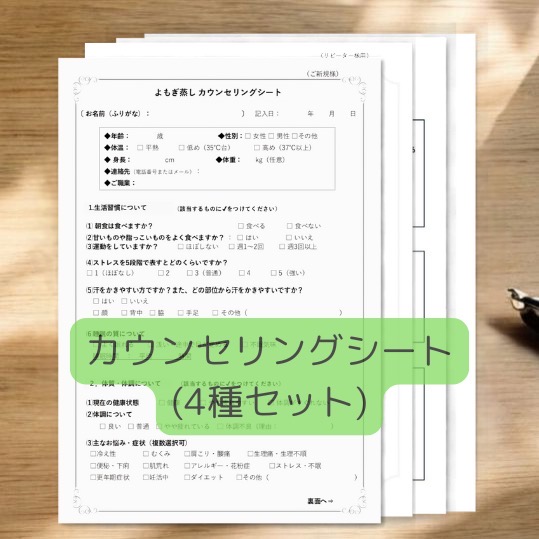 (リピーター様用)
(ご新規様)
よもぎ蒸し カウンセリングシート
〔お名前（ふりがな）： 〕 記入日： 年 月 日
◆年齢： 歳 ◆性別：□ 女性 □ 男性 □その他
◆体温： □ 平熱 □ 低め（35℃台） □ 高め（37℃以上）
◆ 身長： cm ◆体重： kg（任意）
◆連絡先（電話番号またはメール）：
◆ご職業：
1.生活習慣について （該当するものに✓をつけてください）
(1)朝食は食べますか？ □ 食べる □ 食べない
(2)甘いものや脂っこいものをよく食べますか？： □ はい □ いいえ
(3)運動をしていますか？ □ ほぼしない □ 週1〜2回 □ 週3回以上
(4)ストレスを5段階で表すとどのくらいですか？
□ 1（ほぼなし） □ 2 □ 3（普通） □ 4 □ 5（強い）
(5)汗をかきやすい方ですか？また、どの部位から汗をかきやすいですか？
□ はい □ いいえ
□ 顔 □ 背中 □ 脇 □ 手足 □ その他（ ）
(6)睡眠の質について
カウンセリングシート
2. 体質・体調について （該当するものに✓をつけてください）
(4種セット)
(1)現在の健康状態
(2)体調について
□ 良い □ 普通 □ やや疲れている □ 体調不良（理由： ）
(3)主なお悩み・症状（複数選択可）
□冷え性 □ むくみ □ 肩こり・腰痛 □ 生理痛・生理不順
□便秘・下痢 □ 肌荒れ □ アレルギー・花粉症 □ ストレス・不眠
□更年期症状 □ 妊活中 □ ダイエット □ その他（ ）
裏面へ⇒